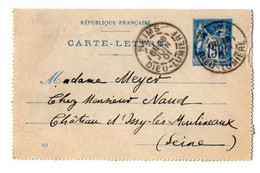 RÉPUBLIQUE FRANÇAISE
CARTE-LETTRE
REIMS
DIEU-LUMIÈRE
15
DIEU-LUMIÈRE
Madame Meyer
Chez Monsieur Naud
Château d'Issy-les-Moulineaux
(Seine)